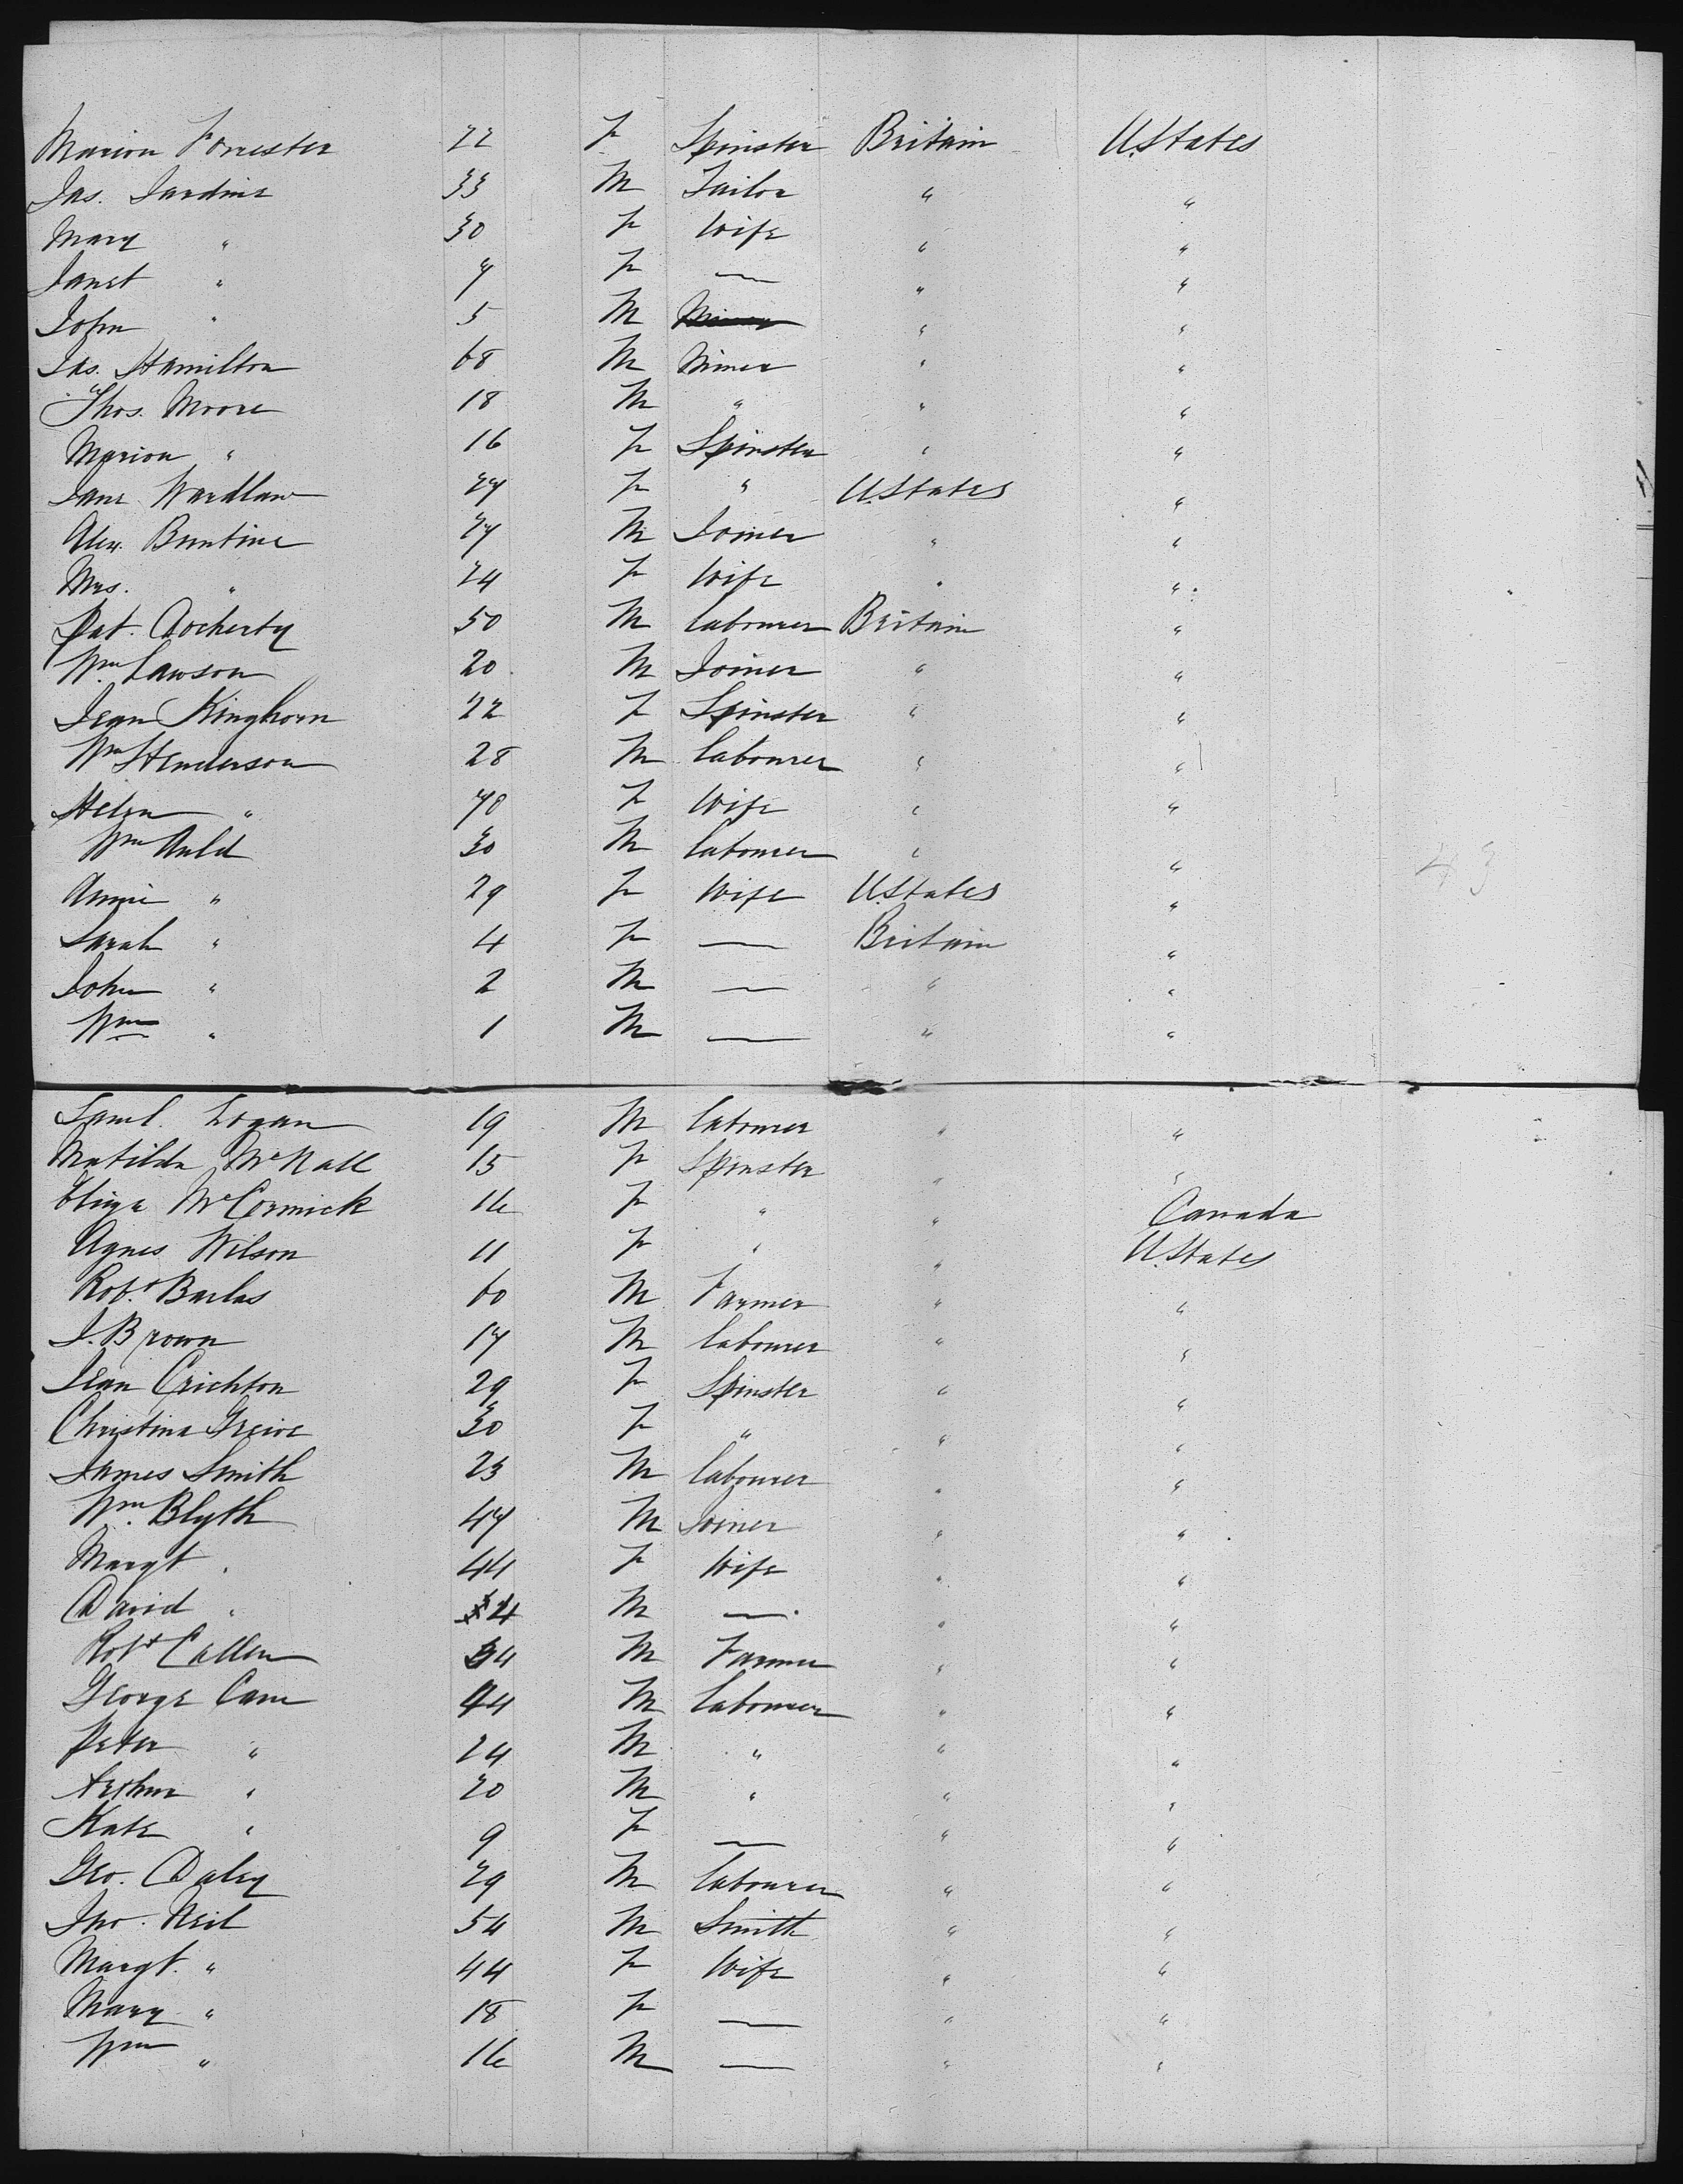 Marion Forrester 22 F Spinster Britain U.States
Jas. Jardine 33 M Tailor " "
Mary " 30 F Wife " "
Janet " 7 F — " "
John " 5 M Miner " "
Jas. Hamilton 68 M Miner " "
Thos. Moore 18 M " " "
Marion " 16 F Spinster " "
Jane Wardlaw 27 F " U.States "
Alex. Buntine 27 M Joiner " "
Mrs. " 24 F Wife " "
Pat. Docherty 50 M Labourer Britain "
Wm Lawson 20 M Joiner " "
Jean Kinghorn 22 F Spinster " "
Wm Henderson 28 M Labourer " "
Helen " F Wife " "
Wm Auld 30 M Labourer " "
Annie " 29 F Wife U.States " 43
Sarah " 4 F — Britain "
John " 2 M — " "
Wm " 1 M — " "
Saml. Logan 19 M Labourer " "
Matilda McNall 15 F Spinster " "
Eliza McCormick 16 F " " Canada
Agnes Wilson 11 F " " U.States
Robt. Barlas 60 M Farmer " "
J. Brown 17 M Labourer " "
Jean Crichton 29 F Spinster " "
Christina Greive 30 F " " "
James Smith 23 M Labourer " "
Wm. Blyth 47 M Joiner " "
Margt " 44 F Wife " "
David " M — " "
Robt Callen M Farmer " "
George Cam 44 M Labourer " "
Peter " 24 M " " "
Arthur " 20 M " " "
Kate " 9 F — " "
Geo. Daley 29 M Labourer " "
Jno. Neil 54 M Smith " "
Margt. " 44 F Wife " "
Mary " 18 F — " "
Wm " 16 M — " "